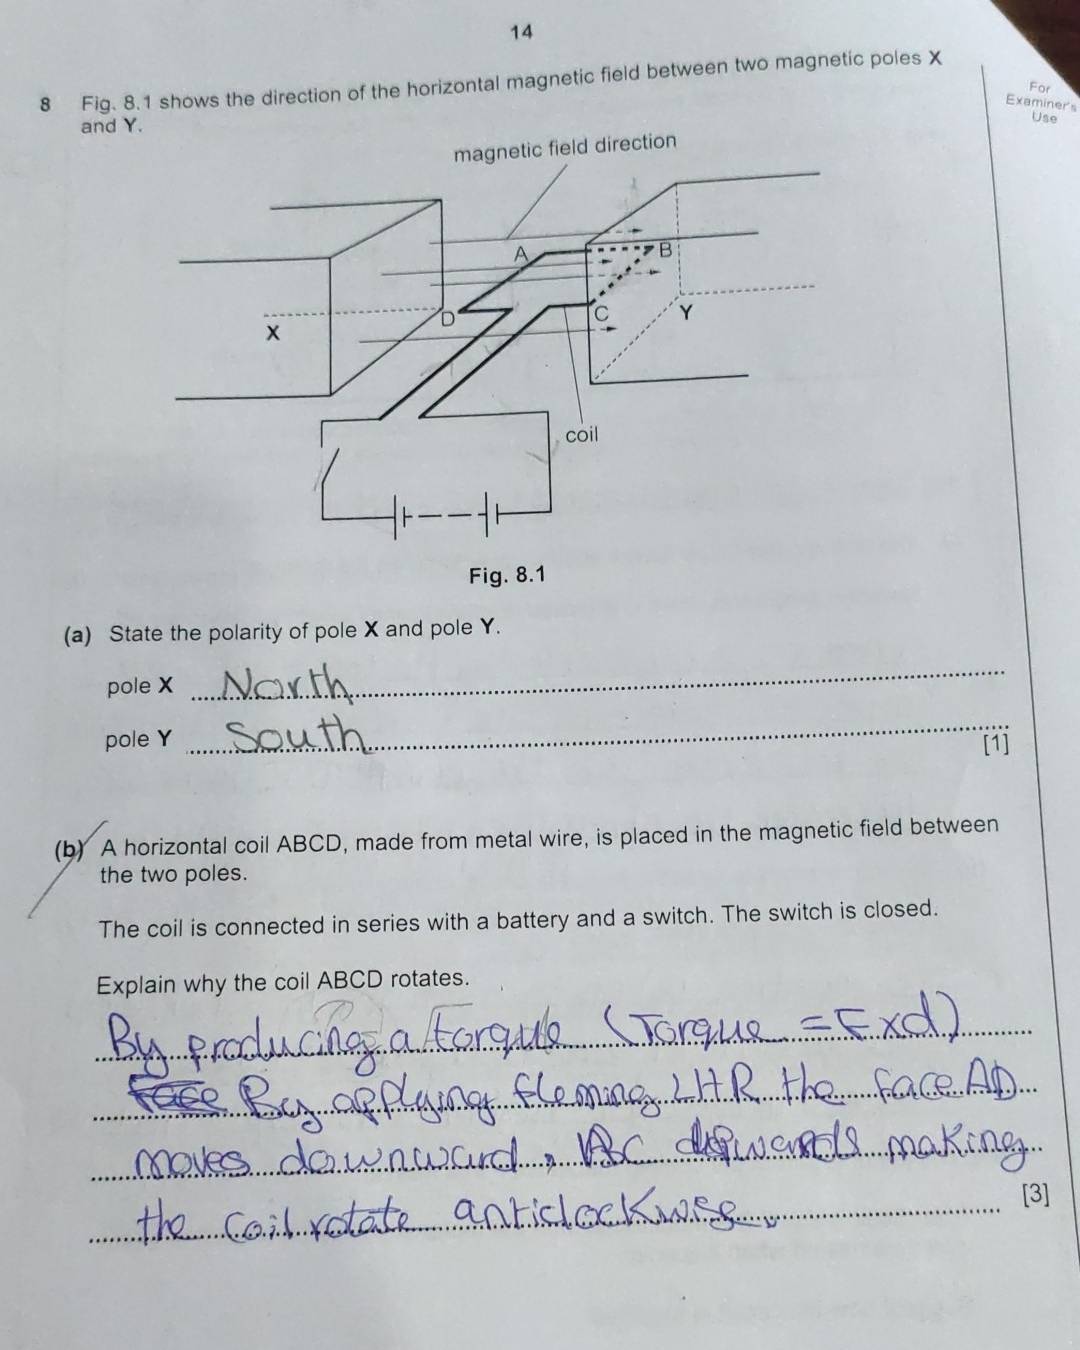 14
8 Fig. 8.1 shows the direction of the horizontal magnetic field between two magnetic poles X
and Y.
For
Examiner's
Use
magnetic field direction
A
B
D
C
Y
X
coil
Fig. 8.1
(a) State the polarity of pole X and pole Y.
pole X North
pole Y South
[1]
(b) A horizontal coil ABCD, made from metal wire, is placed in the magnetic field between
the two poles.
The coil is connected in series with a battery and a switch. The switch is closed.
Explain why the coil ABCD rotates.
By producing a torque (Torque = F x d)
By applying fleming LHR the face AD
moves downward, BC making
the coil rotate anticlockwise.
[3]